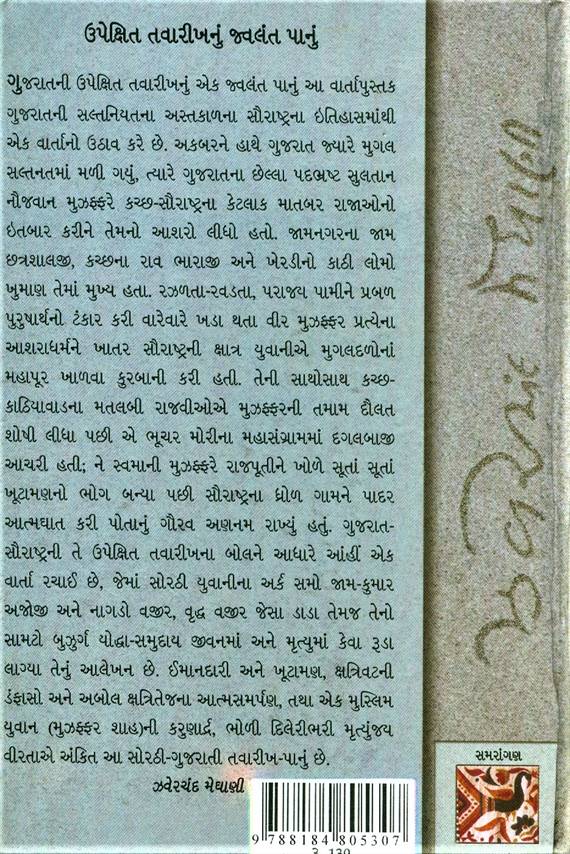 ઉપેક્ષિત તવારીખનું જ્વલંત પાનું
ગુજરાતની ઉપેક્ષિત તવારીખનું એક જ્વલંત પાનું આ વાર્તાપુસ્તક
ગુજરાતની સલ્તનિયતના અસ્તકાળના સૌરાષ્ટ્રના ઇતિહાસમાંથી
એક વાર્તાનો ઉઠાવ કરે છે. અકબરને હાથે ગુજરાત જ્યારે મુગલ
સલ્તનતમાં મળી ગયું, ત્યારે ગુજરાતના છેલ્લા પદભ્રષ્ટ સુલતાન
નૌજવાન મુઝફ્ફરે કચ્છ-સૌરાષ્ટ્રના કેટલાક માતબર રાજાઓનો
ઇતબાર કરીને તેમનો આશરો લીધો હતો. જામનગરના જામ
છત્રશાલજી, કચ્છના રાવ ભારાજી અને ખેરડીનો કાઠી લોમો
ખુમાણ તેમાં મુખ્ય હતા. રઝળતા-રવડતા, પરાજય પામીને પ્રબળ
પુરુષાર્થનો ટંકાર કરી વારેવારે ખડા થતા વીર મુઝફ્ફર પ્રત્યેના
આશરાધર્મને ખાતર સૌરાષ્ટ્રની ક્ષાત્ર યુવાનીએ મુગલદળોનાં
મહાપૂર ખાળવા કુરબાની કરી હતી. તેની સાથોસાથ કચ્છ-
કાઠિયાવાડના મતલબી રાજવીઓએ મુઝફ્ફરની તમામ દૌલત
શોષી લીધા પછી એ ભૂચર મોરીના મહાસંગ્રામમાં દગલબાજી
આચરી હતી; ને સ્વમાની મુઝફ્ફરે રાજપૂતીને ખોળે સૂતાં સૂતાં
ખૂટામણનો ભોગ બન્યા પછી સૌરાષ્ટ્રના ધ્રોળ ગામને પાદર
આત્મઘાત કરી પોતાનું ગૌરવ અણનમ રાખ્યું હતું. ગુજરાત-
સૌરાષ્ટ્રની તે ઉપેક્ષિત તવારીખના બોલને આધારે આંહીં એક
વાર્તા રચાઈ છે, જેમાં સોરઠી યુવાનીના અર્ક સમો જામ-કુમાર
અજોજી અને નાગડો વજીર, વૃદ્ધ વજીર જેસા ડાડા તેમજ તેનો
સામટો બુઝુર્ગ યોદ્ધા-સમુદાય જીવનમાં અને મૃત્યુમાં કેવા રૂડા
લાગ્યા તેનું આલેખન છે. ઈમાનદારી અને ખૂટામણ, ક્ષત્રિવટની
ડંફાસો અને અબોલ ક્ષત્રિતેજના આત્મસમર્પણ, તથા એક મુસ્લિમ
યુવાન (મુઝફ્ફર શાહ)ની કરુણાર્દ્ર, ભોળી દિલેરીભરી મૃત્યુંજય
વીરતાએ અંકિત આ સોરઠી-ગુજરાતી તવારીખ-પાનું છે.
ઝવેરચંદ મેઘાણી
9 788184 805307
ઝવેરચંદ મેઘાણી
સમરાંગણ